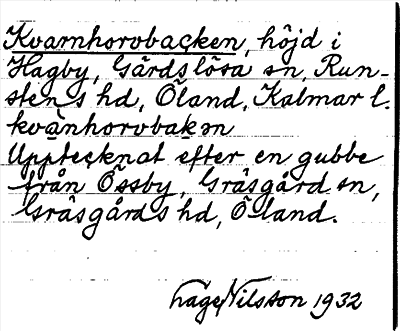 Kvarnhorvbacken, höjd i
Hagby, Gärdslösa sn, Run-
stens hd, Öland, Kalmar l.
kvànhorvbakən
Upptecknat efter en gubbe
från Össby, Gräsgård sn,
Gräsgårds hd, Öland.
Hage Nilsson 1932